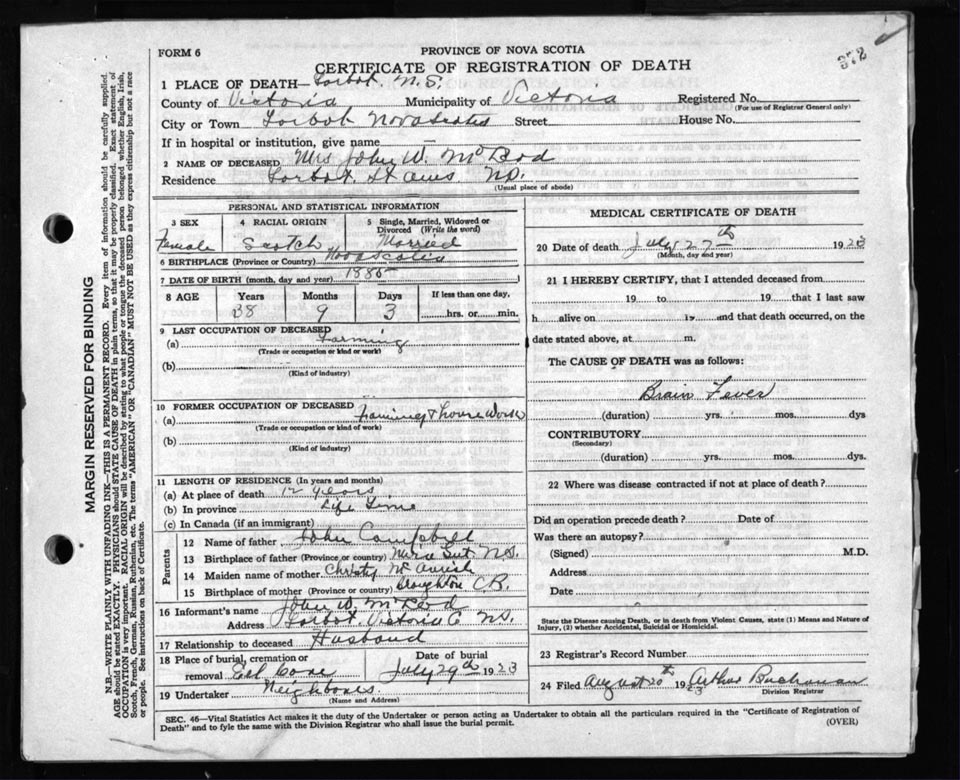 FORM 6
PROVINCE OF NOVA SCOTIA
CERTIFICATE OF REGISTRATION OF DEATH
372
1 PLACE OF DEATH— Tarbot N.S.
County of Victoria Municipality of Victoria Registered No.
(For use of Registrar General only)
City or Town Tarbot Nova Scotia Street House No.
If in hospital or institution, give name
2 NAME OF DECEASED Mrs John W. McLeod
Residence Tarbot St Anns N.S.
(Usual place of abode)
PERSONAL AND STATISTICAL INFORMATION
3 SEX 4 RACIAL ORIGIN 5 Single, Married, Widowed or Divorced (Write the word)
Female Scotch Married
6 BIRTHPLACE (Province or Country) Nova Scotia
7 DATE OF BIRTH (month, day and year) 1885
8 AGE Years Months Days If less than one day,
38 9 3 hrs. or min.
9 LAST OCCUPATION OF DECEASED
(a) Farming
(Trade or occupation or kind or work)
(b)
(Kind of industry)
10 FORMER OCCUPATION OF DECEASED
(a) farming & house Work
(Trade or occupation or kind of work)
(b)
(Kind of industry)
11 LENGTH OF RESIDENCE (In years and months)
(a) At place of death 12 years
(b) In province Life Time
(c) In Canada (if an immigrant)
Parents
12 Name of father John Campbell
13 Birthplace of father (Province or country) Mira Gut N.S.
14 Maiden name of mother Christy
15 Birthplace of mother (Province or country) C.B.
16 Informant's name John W. McLeod
Address Tarbot Victoria C. N.S.
17 Relationship to deceased Husband
18 Place of burial, cremation or removal Eel Cove Date of burial July 29th 1923
19 Undertaker Neighbores.
(Name and Address)
MEDICAL CERTIFICATE OF DEATH
20 Date of death July 27th 1923
(Month, day and year)
21 I HEREBY CERTIFY, that I attended deceased from
19 to 19 that I last saw
h alive on 19 and that death occurred, on the
date stated above, at m.
The CAUSE OF DEATH was as follows:
Brain Fever
(duration) yrs. mos. dys
CONTRIBUTORY
(Secondary)
(duration) yrs. mos. dys.
22 Where was disease contracted if not at place of death?
Did an operation precede death? Date of
Was there an autopsy?
(Signed) M.D.
Address
Date
State the Disease causing Death, or in death from Violent Causes, state (1) Means and Nature of
Injury, (2) whether Accidental, Suicidal or Homicidal.
23 Registrar's Record Number
24 Filed August 20th 1923 Arthur Buchanan
Division Registrar
SEC. 46—Vital Statistics Act makes it the duty of the Undertaker or person acting as Undertaker to obtain all the particulars required in the "Certificate of Registration of
Death" and to fyle the same with the Division Registrar who shall issue the burial permit.
(OVER)
MARGIN RESERVED FOR BINDING
N.B.—WRITE PLAINLY WITH UNFADING INK—THIS IS A PERMANENT RECORD. Every item of information should be carefully supplied.
AGE should be stated EXACTLY. PHYSICIANS should STATE CAUSE OF DEATH in plain terms, so that it may be properly classified. Exact statement of
OCCUPATION is very important. RACIAL ORIGIN will be described by stating to what people or tongue the deceased person belonged whether English, Irish,
Scotch, French, German, Russian, Ruthenian, etc. The terms "AMERICAN" OR "CANADIAN" MUST NOT BE USED as they express citizenship but not a race
or people. See instructions on back of Certificate.